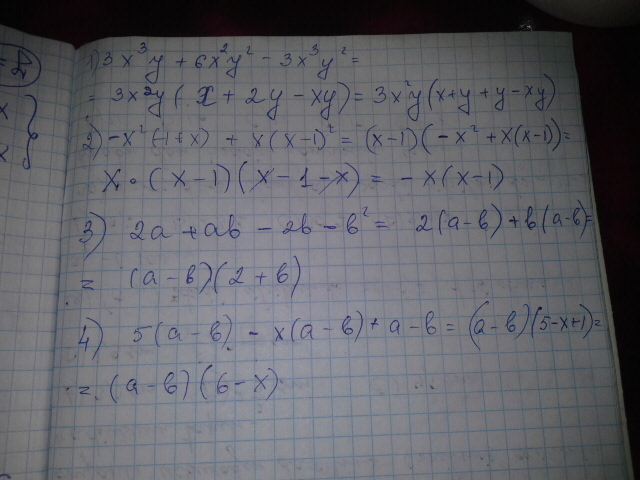 1) 3x³y + 6x²y² - 3x³y² =
= 3x²y(x + 2y - xy) = 3x²y(x+y+y-xy)
2) -x²(-1+x) + x(x-1)² = (x-1)(-x² + x(x-1)) =
x·(x-1)(x-1-x) = -x(x-1)
3) 2a + ab - 2b - b² = 2(a-b)+b(a-b)=
= (a-b)(2+b)
4) 5(a-b) - x(a-b) + a-b = (a-b)(5-x+1)=
= (a-b)(6-x)